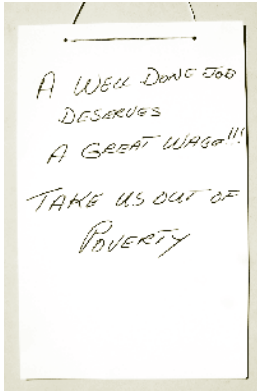 A WELL DONE JOB
DESERVES
A GREAT WAGE!!!
TAKE US OUT OF
POVERTY